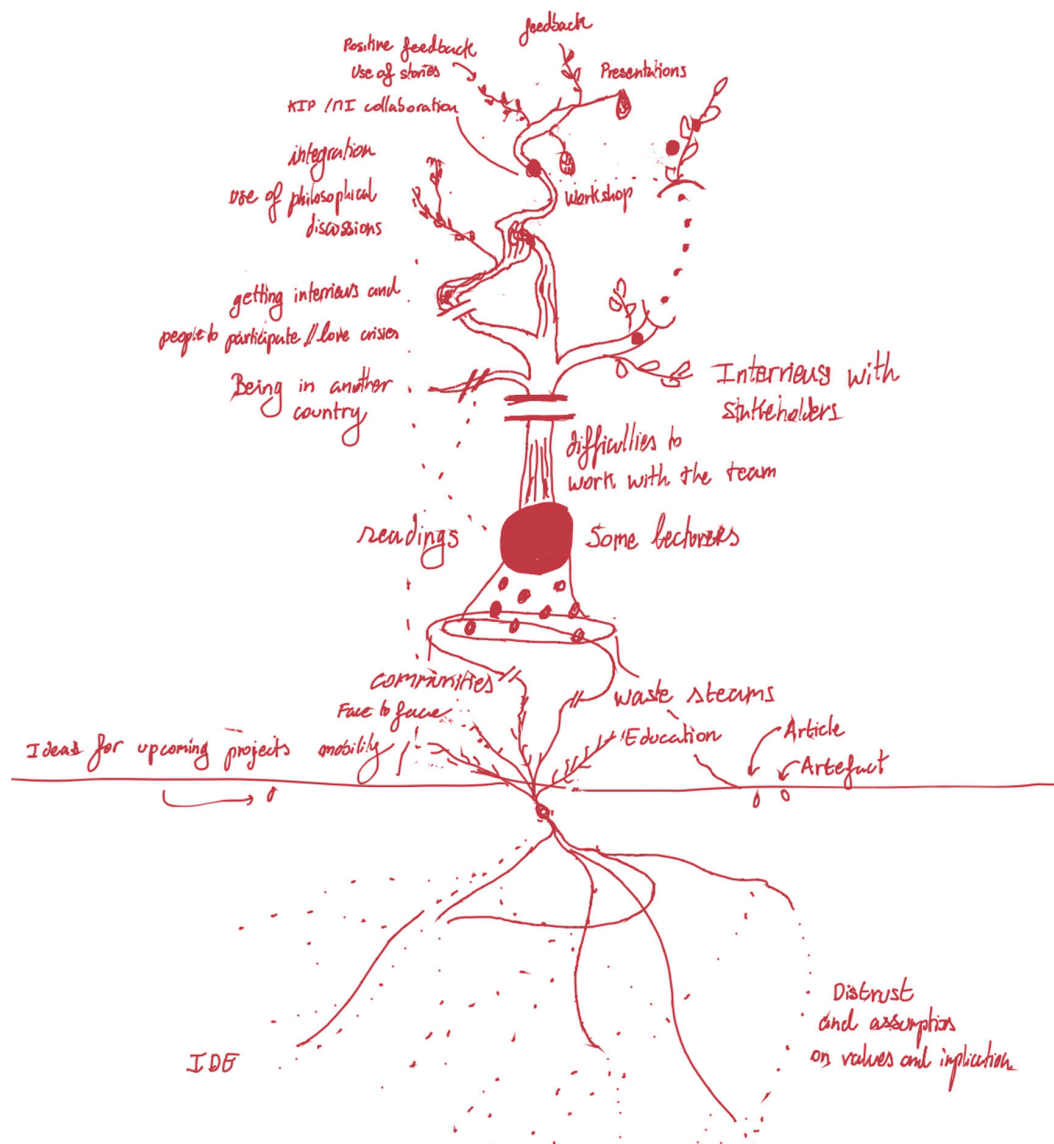 feedback
Positive feedback
Use of stories
Presentations
KIP / MI collaboration
integration
use of philosophical
discussions
Workshop
getting interviews and
people to participate // love crisies
Being in another
country
Interviews with
stakeholders
difficullies to
work with the team
readings
Some lecturers
communities
Waste steams
Face to face
Education
Ideas for upcoming projects
mobility
Article
Artefact
Distrust
and assumption
on values and implication
IDE